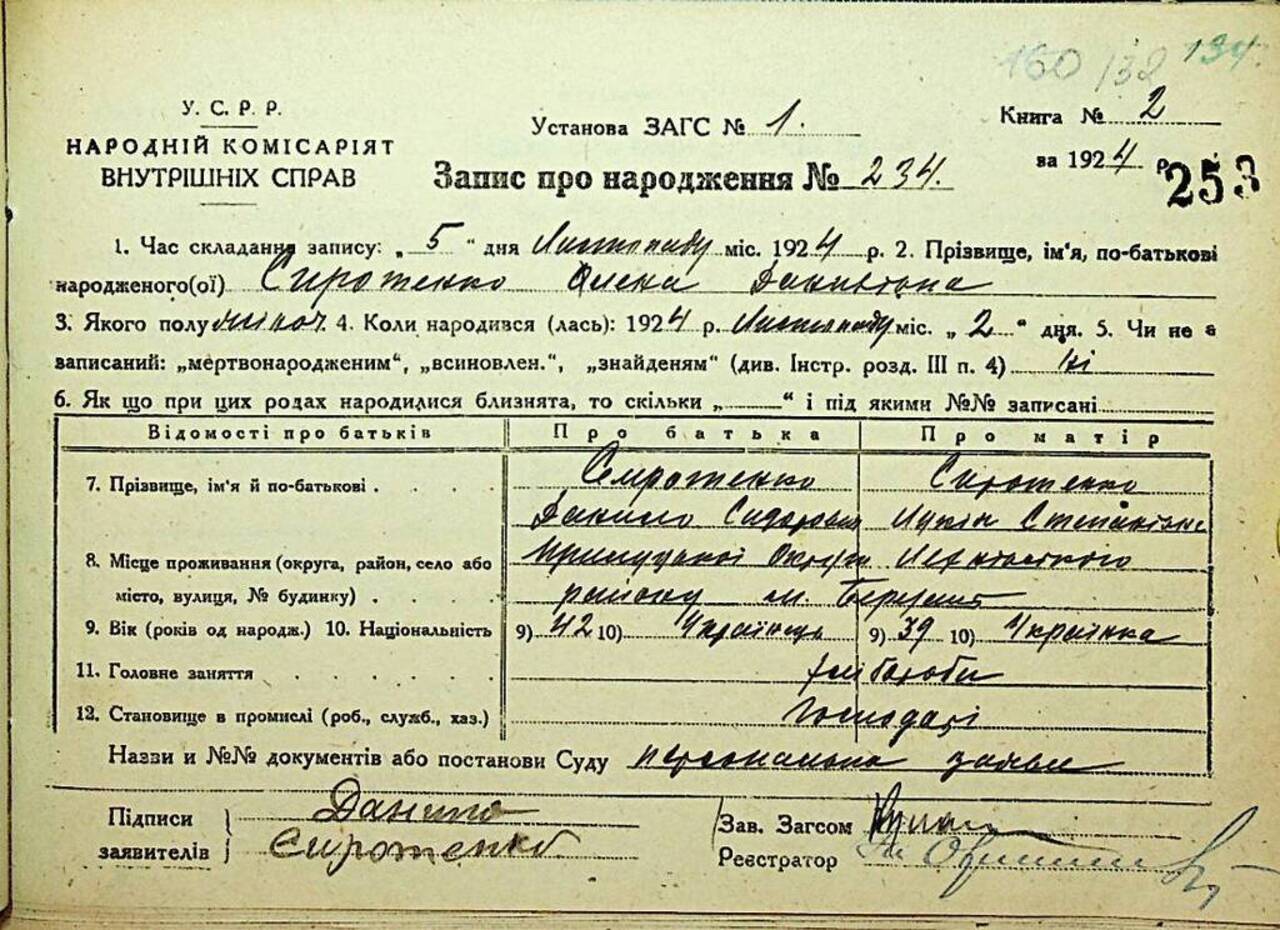 160 132 134.
У. С. Р. Р.
НАРОДНІЙ КОМІСАРІЯТ
ВНУТРІШНІХ СПРАВ
Установа ЗАГС № 1.
Книга № 2
за 1924 р.
253
Запис про народження № 234.
1. Час складання запису: „5“ дня Листопаду міс. 1924 р. 2. Прізвище, ім'я, по-батькові
народженого(ої) Сиротенко Олена Данилівна
3. Якого полу жіноч. 4. Коли народився (лась): 1924 р. Листопаду міс. „2“ дня. 5. Чи не є
записаний: „мертвонародженим“, „всиновлен.“, „знайденям“ (див. Інстр. розд. III п. 4) ні
6. Як що при цих родах народилися близнята, то скільки „ “ і під якими №№ записані
Відомості про батьків Про батька Про матір
7. Прізвище, ім'я й по-батькові . . . . Сиротенко Сиротенко
Данило Сидорович Степанівна
8. Місце проживання (округа, район, село або Прилуцької Округи
місто, вулиця, № будинку) . . . . району м. Березань
9. Вік (років од народж.) 10. Національність 9) 42 10) Українець 9) 39 10) Українка
11. Головне заняття . . . . . . хлібороби
12. Становище в промислі (роб., служб., хаз.) Господарі
Назви и №№ документів або постанови Суду персональна заява
Підписи Данило
заявителів Сиротенко
Зав. Загсом
Реєстратор